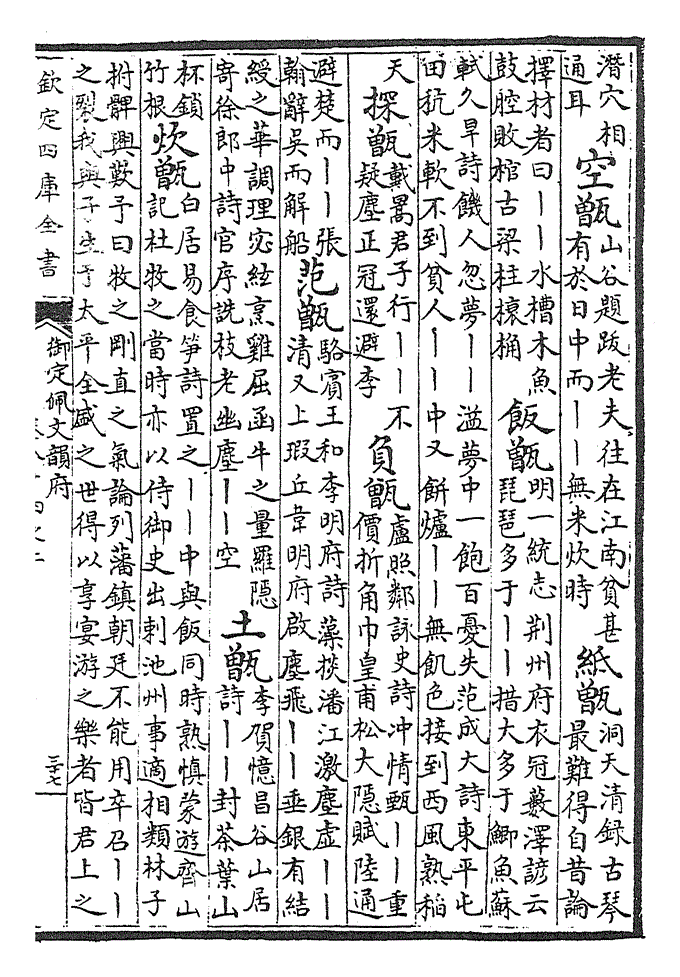 潛穴相
通耳
空甑
山谷題跋老夫往在江南貧甚
有於日中而丨丨無米炊時
紙甑
洞天清録古琴
最難得自昔論
擇材者曰丨丨水槽木魚
鼓腔敗棺古梁柱榱桷
飯甑
明一統志荆州府衣冠藪澤諺云
琵琶多于丨丨措大多于鯽魚蘇
軾久旱詩饑人忽夢丨丨溢夢中一飽百憂失范成大詩東平屯
田秔米軟不到貧人丨丨中又餅爐丨丨無飢色接到西風熟稻
天
探甑
戴暠君子行丨丨不
疑塵正冠還避李
負甑
盧照鄰詠史詩冲情甄丨丨重
價折角巾皇甫松大隱賦陸通
避楚而丨丨張
翰辭吳而解船
范甑
駱賓王和李明府詩藻掞潘江激塵虛丨丨
清又上瑕丘韋明府啟塵飛丨丨垂銀有結
綬之華調理宓絃烹雞屈函牛之量羅隱
寄徐郎中詩官序詵枝老幽塵丨丨空
土甑
李賀憶昌谷山居
詩丨丨封茶葉山
杯鎖
竹根
炊甑
白居易食笋詩置之丨丨中與飯同時熟慎蒙遊齊山
記杜牧之當時亦以侍御史出刺池州事適相類林子
拊髀興歎予曰牧之剛直之氣論列藩鎮朝廷不能用卒召丨丨
之裂我與子生于太平全盛之世得以享宴游之樂者皆君上之
欽定四庫全書
御定佩文韻府
三十七